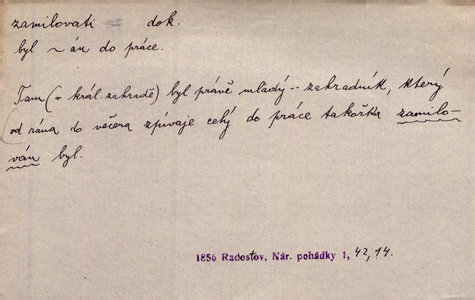 zamilovati dok.
byl ~ án do práce.
Tam (v král. zahradě) byl právě mladý -- zahradník, který
od rána do večera zpívaje celý do práce takořka zamilo-
ván byl.
1856 Radostov, Nár. pohádky 1, 42, 14.